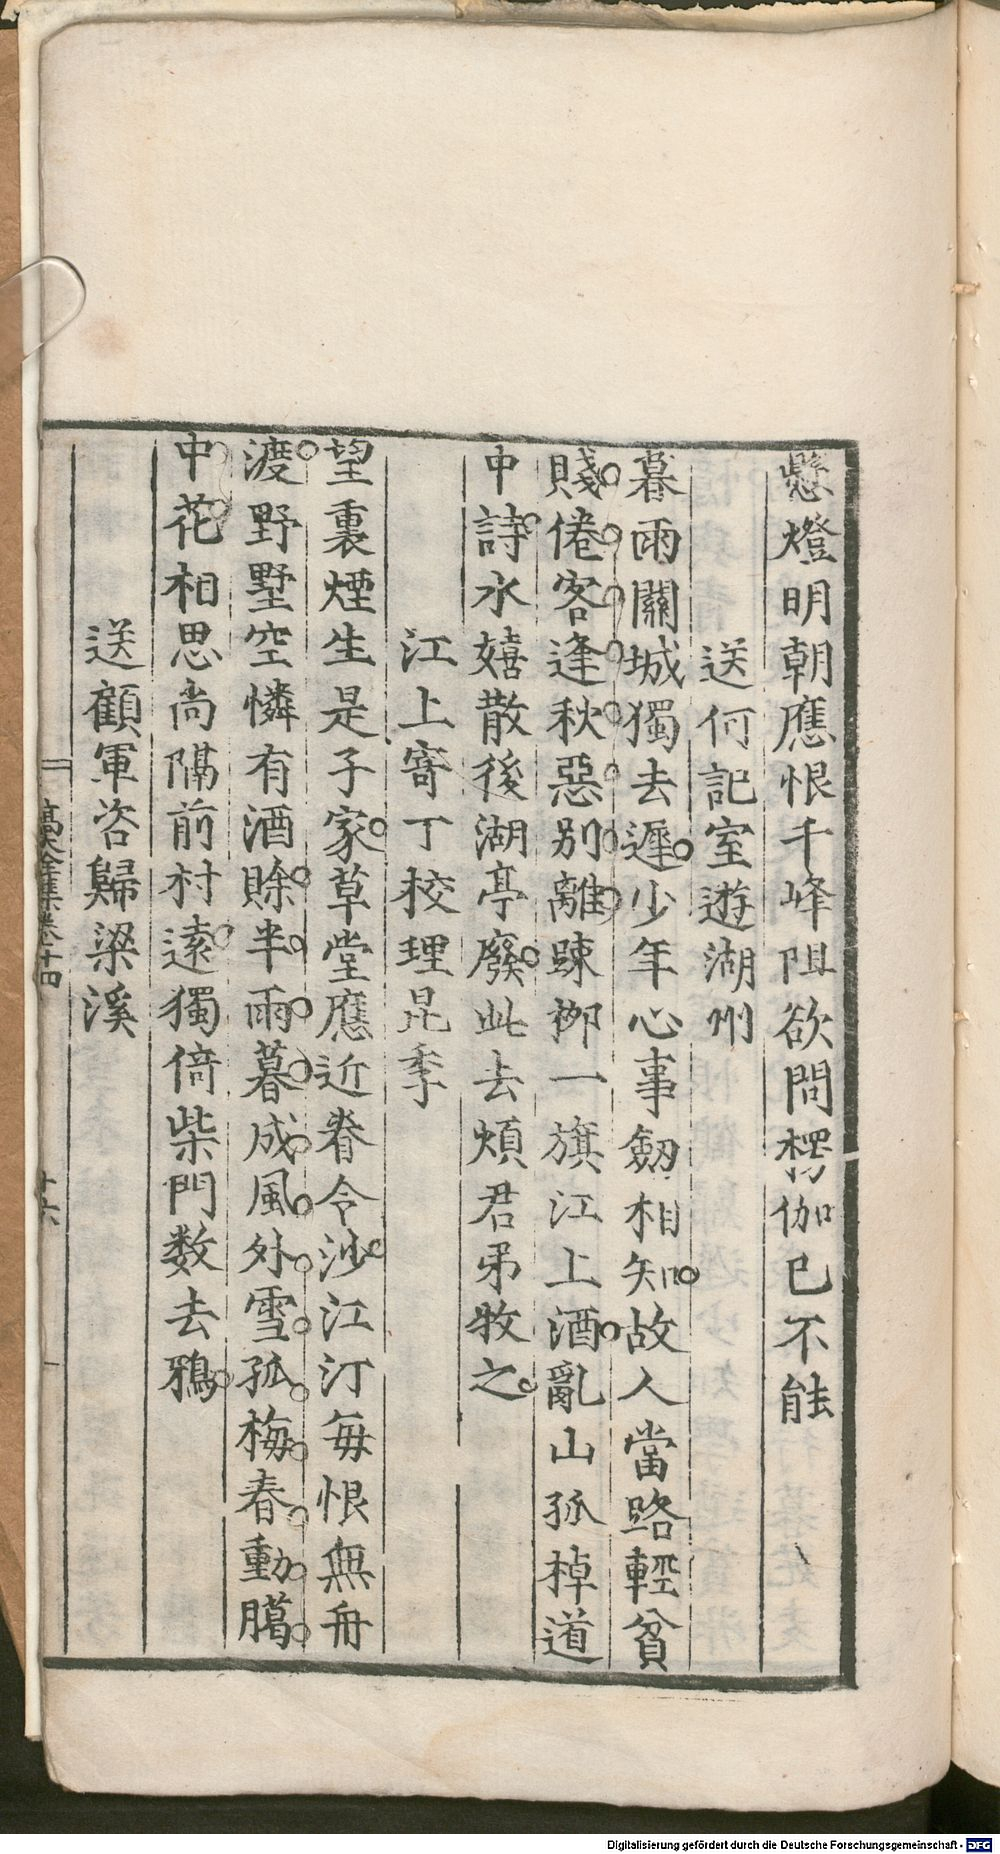 懸燈明朝應恨千峰阻欲問楞伽已不能
送何記室遊湖州
暮雨關城獨去遲少年心事劒相知故人當路輕貧
賤倦客逢秋惡別離踈栁一旗江上酒亂山孤棹道
中詩水嬉散後湖亭廢此去煩君弔牧之
江上寄丁校理昆季
望裏煙生是子家草堂應近眷令沙江汀每恨無舟
渡野墅空憐有酒賒半雨暮成風外雪孤梅春動臈
中花相思尚隔前村遠獨倚柴門数去鴉
送顧軍咨歸梁溪
高太史全集卷十四
十六
Digitalisierung gefördert durch die Deutsche Forschungsgemeinschaft - DFG